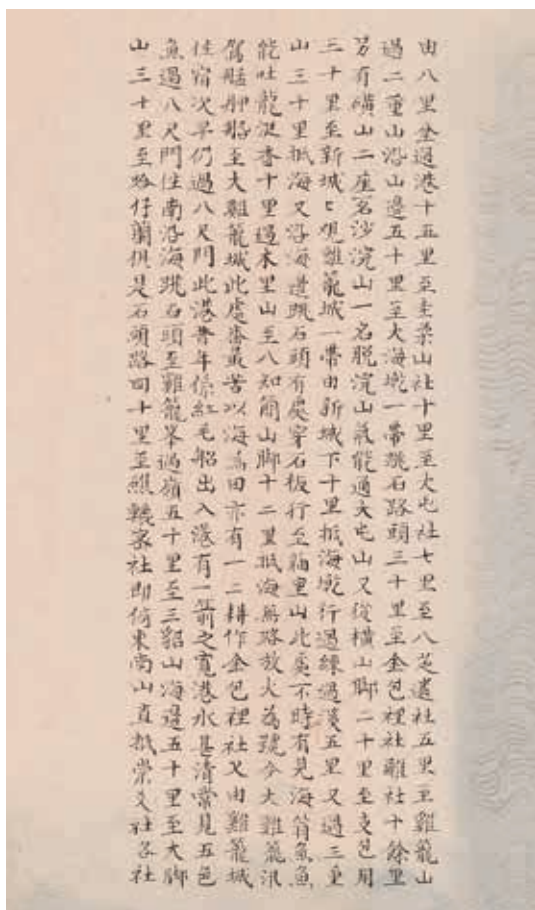 由八里坌過港十五里至圭柔山社十里至大屯社七里至八芝連社五里至雞龍山
過二重山沿山邊五十里至大海墘一帶跳石路頭三十里至金包裡社離社十餘里
另有磺山二座名沙浣山一名脫浣山氣能通大屯山又從橫山腳二十里至
三十里至新城城一帶由新城下十里抵海墘行過練過溪五里又過三重
山三十里抵海又沿海邊跳石頭有處穿石板行至山此處不時有見海翁魚魚
能吐龍涎香十里過木里山至八知簡山腳十二里抵海無路放火為號令大雞籠汛
駕艋舺船至大雞籠城此處番最苦以海為田亦有一二耕作金包裡社又由雞籠城
住宿次早仍過八尺門此港昔年係紅毛船出入港有一箭之寬港水甚清常見五色
魚過八尺門住南沿海跳石頭至雞籠峯過嶺五十里至三貂山海邊五十里至大腳
山三十里至蛤仔蘭俱是石頭路四十里至家社即倚東南山直抵崇爻社各社